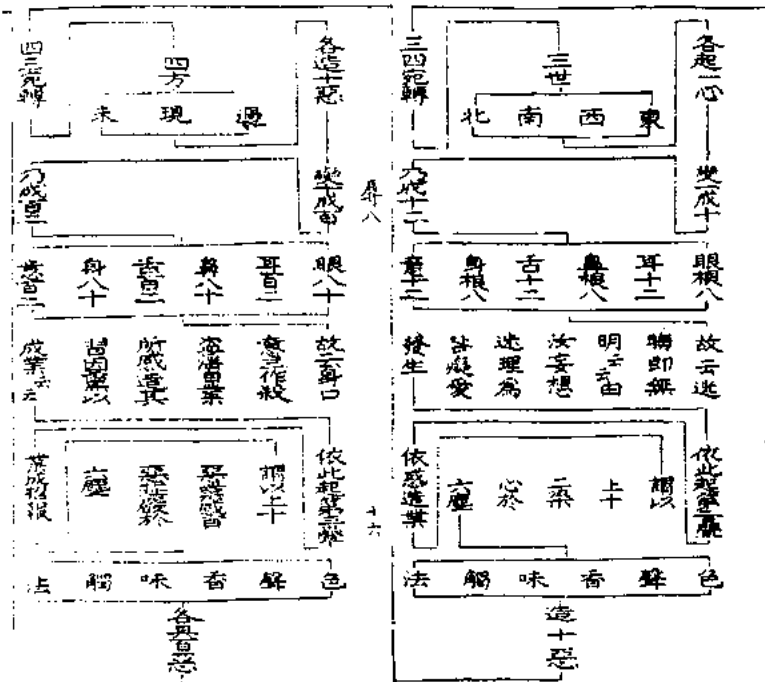 各起一心
三世
三四宛轉
東
西
南
北
變一成十
乃成十二
眼根八
耳十二
鼻根八
舌十二
身根八
意十二
故云迷
晦即無
明云云由
汝妄想
迷理為
咎癡愛
發生
依此起第二疊
謂以
上十
二染
心於
六塵
依惑造業
色
聲
香
味
觸
法
造十惡
各造十惡
四方
四三宛轉
過
現
未
變十成百
乃成百二
眼八十
耳百二
鼻八十
舌百二
身八十
意百二
故云身口
意
作殺
盜婬
業
所感造其
習
業以
成業云云
依此起第三疊
謂以上十
六塵
業成招報
色
聲
香
味
觸
法
各具百惡
十六